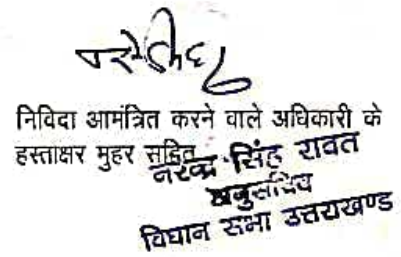 निविदा आमंत्रित करने वाले अधिकारी के
हस्ताक्षर मुहर सहित
नरेन्द्र सिंह रावत
अनुसचिव
विधान सभा उत्तराखण्ड